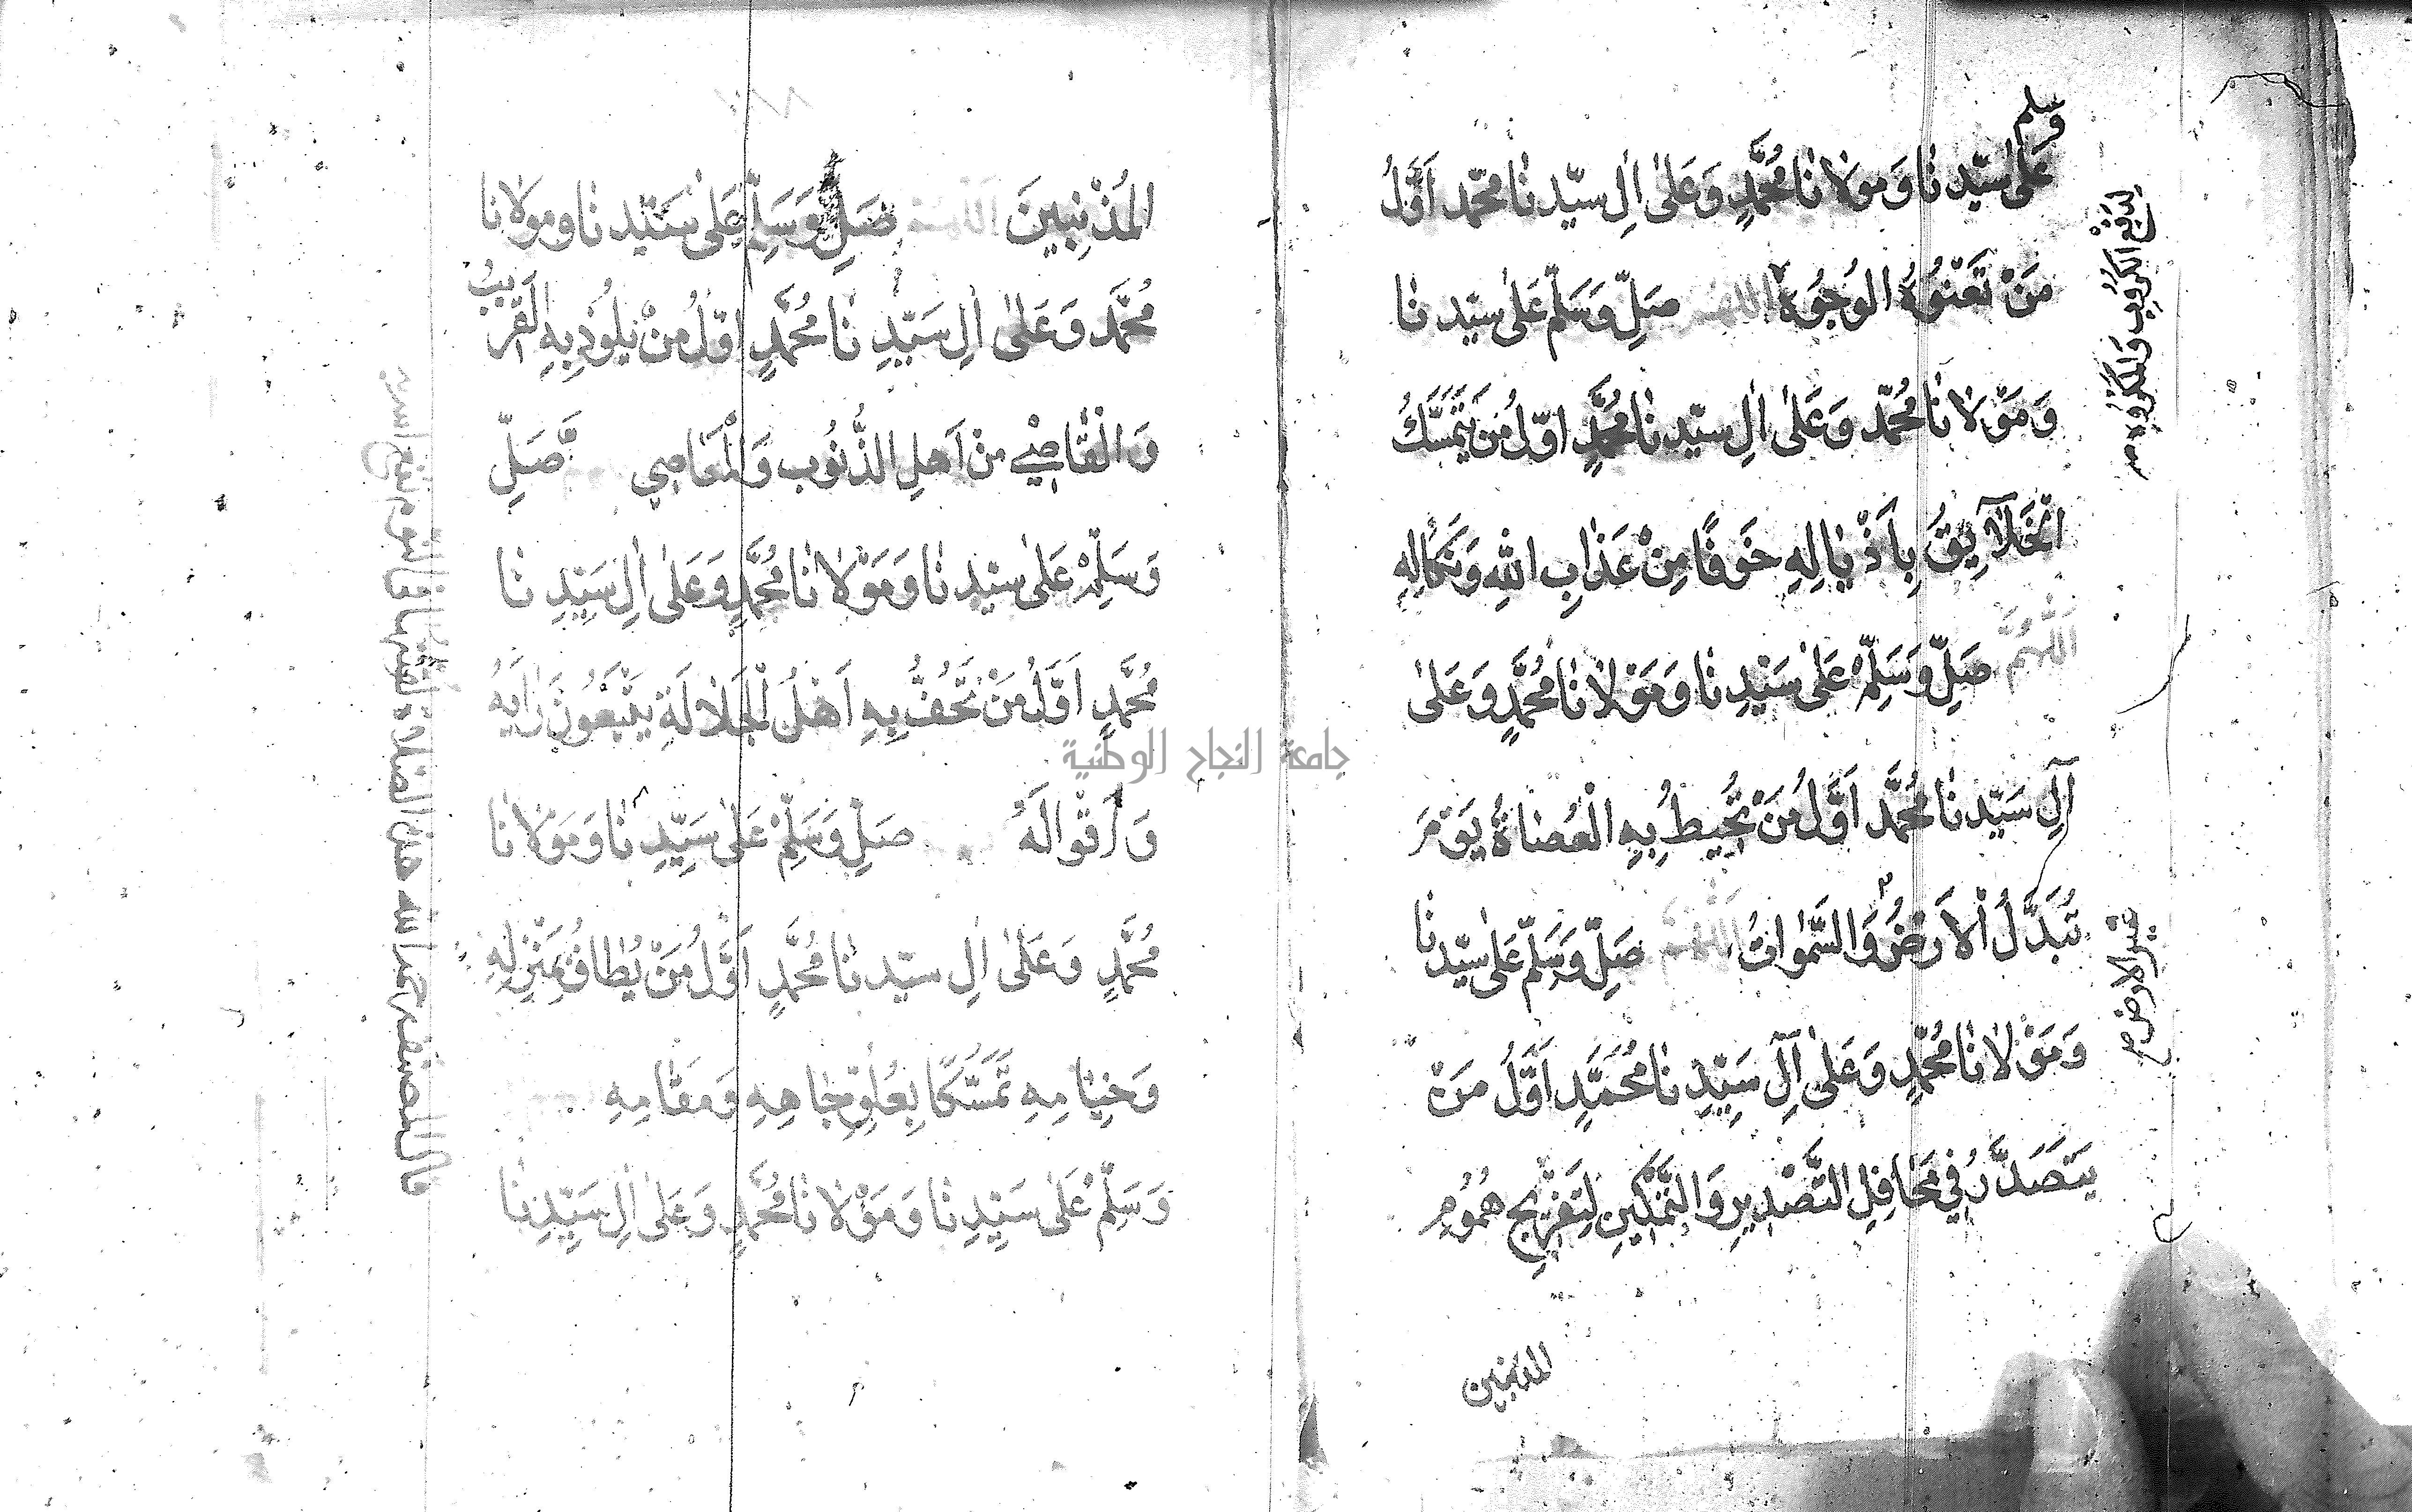 وسلم
عَلىٰ سَيّدِنٰا وَمولٰانٰا مُحَمَّدٍ وَعَلىٰ اٰلِ سيّدنٰا محمّد اَوَّلُ
مَنْ تَعْنُوُا الوُجُوهُ اللهم صَلِّ وَسَلّم عَلىٰ سيّدنٰا
وَمَوْلٰانٰا مُحمّد وَعَلىٰ اٰلِ سيّدِنٰا مُحَمَّدٍ اوّلُ مَن يَتَمَسَّكُ
الْخَلآيِقُ بِاَذْيٰالِهِ خَوفًا مِنْ عَذٰابِ اللهِ وَنَكٰالِهِ
اَللّٰهُمَّ صَلِّ وَسَلِّمْ عَلىٰ سَيّدِنٰا وَمَوْلٰانٰا مُحَمَّدٍ وَعَلىٰ
آلِ سَيّدنٰا مُحَمَّد اَوَّلُ مَنْ تُحِيطُ بِهِ الْعُصٰاةُ يَوْمَ
تُبَدَّلُ الْاَرْضُ وَالسَّمٰوٰاتُ اَللّٰهم صَلِّ وَسَلِّم عَلىٰ سيّدنٰا
وَمَوْلٰانٰا مُحَمّدٍ وَعَلىٰ آلِ سَيّدِنٰا مُحَمَّدٍ اَوَّلُ مَنْ
يَتَصَدَّرُ فِي مَحٰافِلِ التَّصْدِيرِ وَالتَّمْكِينِ لِتَفْرِيجِ هُمُومِ
المذنبين
لدفع الكروب والمكروه
تغير الارض
المُذْنِبِينَ اَللّٰهم صَلِّ وَسَلِّمْ عَلىٰ سَيّدِنٰا ومولٰانٰا
مُحَمَّد وَعَلىٰ اٰلِ سَيّدِنٰا مُحَمَّدٍ اوّلُ مَنْ يَلُوذُ بِهِ الْقَرِيبُ
وَالْقٰاصِي مِنْ اَهلِ الذُّنُوب وَالْمَعٰاصِي صَلِّ
وَسَلِّمْ عَلىٰ سيّدِنٰا وَمَوْلٰانٰا مُحَمَّدٍ وَعَلىٰ اٰلِ سَيّدِنٰا
مُحَمَّدٍ اَوَّلُ مَنْ تَحُفُّ بِهِ اَهْلُ الْجَلٰالَةِ يَتْبَعُونَ رَاْيَهُ
وَاَقْوالَهُ صَلِّ وَسَلِّمْ عَلىٰ سَيّدِنٰا وَمَوْلٰانٰا
مُحَمَّدٍ وَعَلىٰ اٰلِ سيّدنٰا مُحَمَّدٍ اَوَّلُ مَنْ يُطٰافُ بِمَنْزِلِهِ
وَخِيٰامِهِ تَمَسُّكًا بِعُلُوِّ جٰاهِهِ وَمَقٰامِهِ
وَسَلِّمْ عَلىٰ سَيّدِنٰا وَمَوْلٰانٰا مُحَمَّدٍ وَعَلىٰ اٰلِ سَيّدِنٰا
جامعة النجاح الوطنية